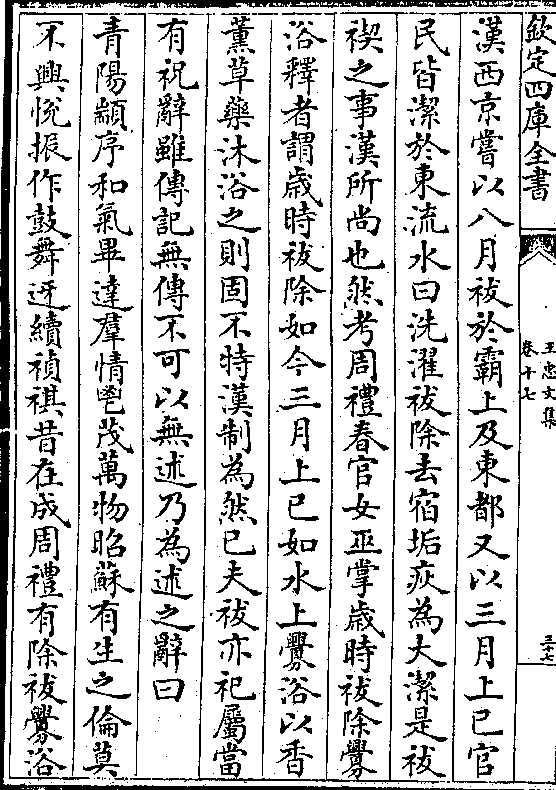 欽定四庫全書
王忠文集
卷十七
三十七
漢西京嘗以八月祓於霸上及東都又以三月上巳官
民皆潔於東流水曰洗濯祓除去宿垢疢為大潔是祓
禊之事漢所尚也然考周禮春官女巫掌歲時祓除釁
浴釋者謂歳時祓除如今三月上巳如水上釁浴以香
薰草藥沐浴之則固不特漢制為然已夫祓亦祀屬當
有祝辭雖傳記無傳不可以無述乃為述之辭曰
青陽顓序和氣畢達羣情鬯茂萬物昭蘇有生之倫莫
不興悅振作鼓舞迓續禎祺昔在成周禮有除祓釁浴